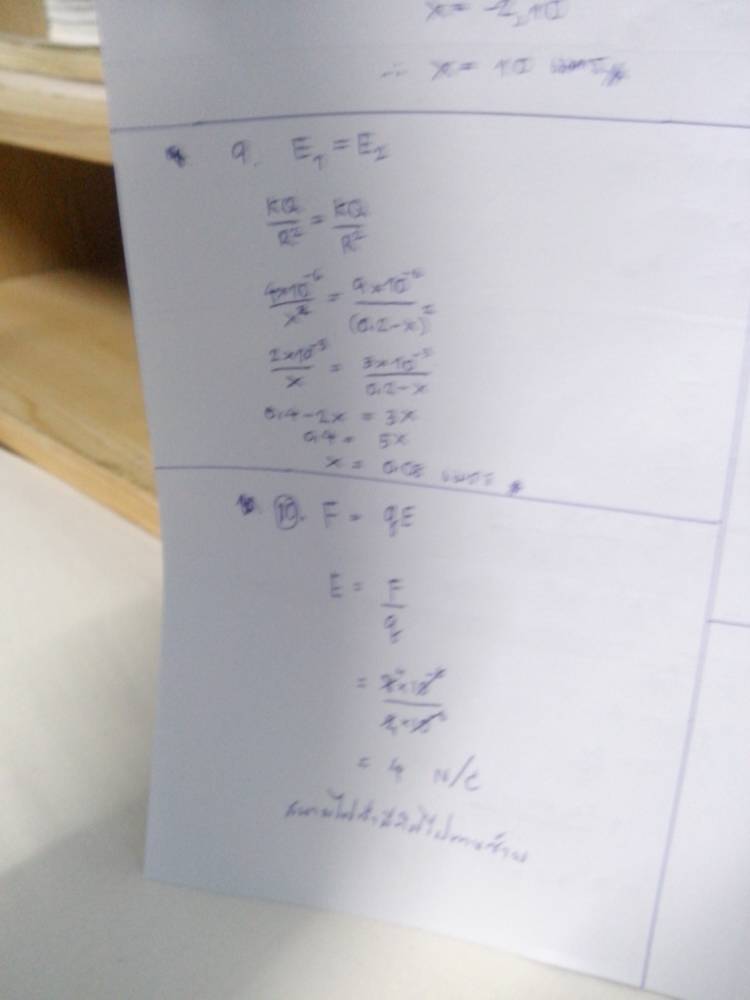 x = -2, 10
∴ x = 10 เมตร
9. E₁ = E₂
KQ/R² = KQ/R²
4×10⁻⁶/x² = 9×10⁻⁶/(0.2-x)²
2×10⁻³/x = 3×10⁻³/0.2-x
0.4-2x = 3x
0.4 = 5x
x = 0.08 เมตร
10. F = qE
E = F/q
= 4 N/C